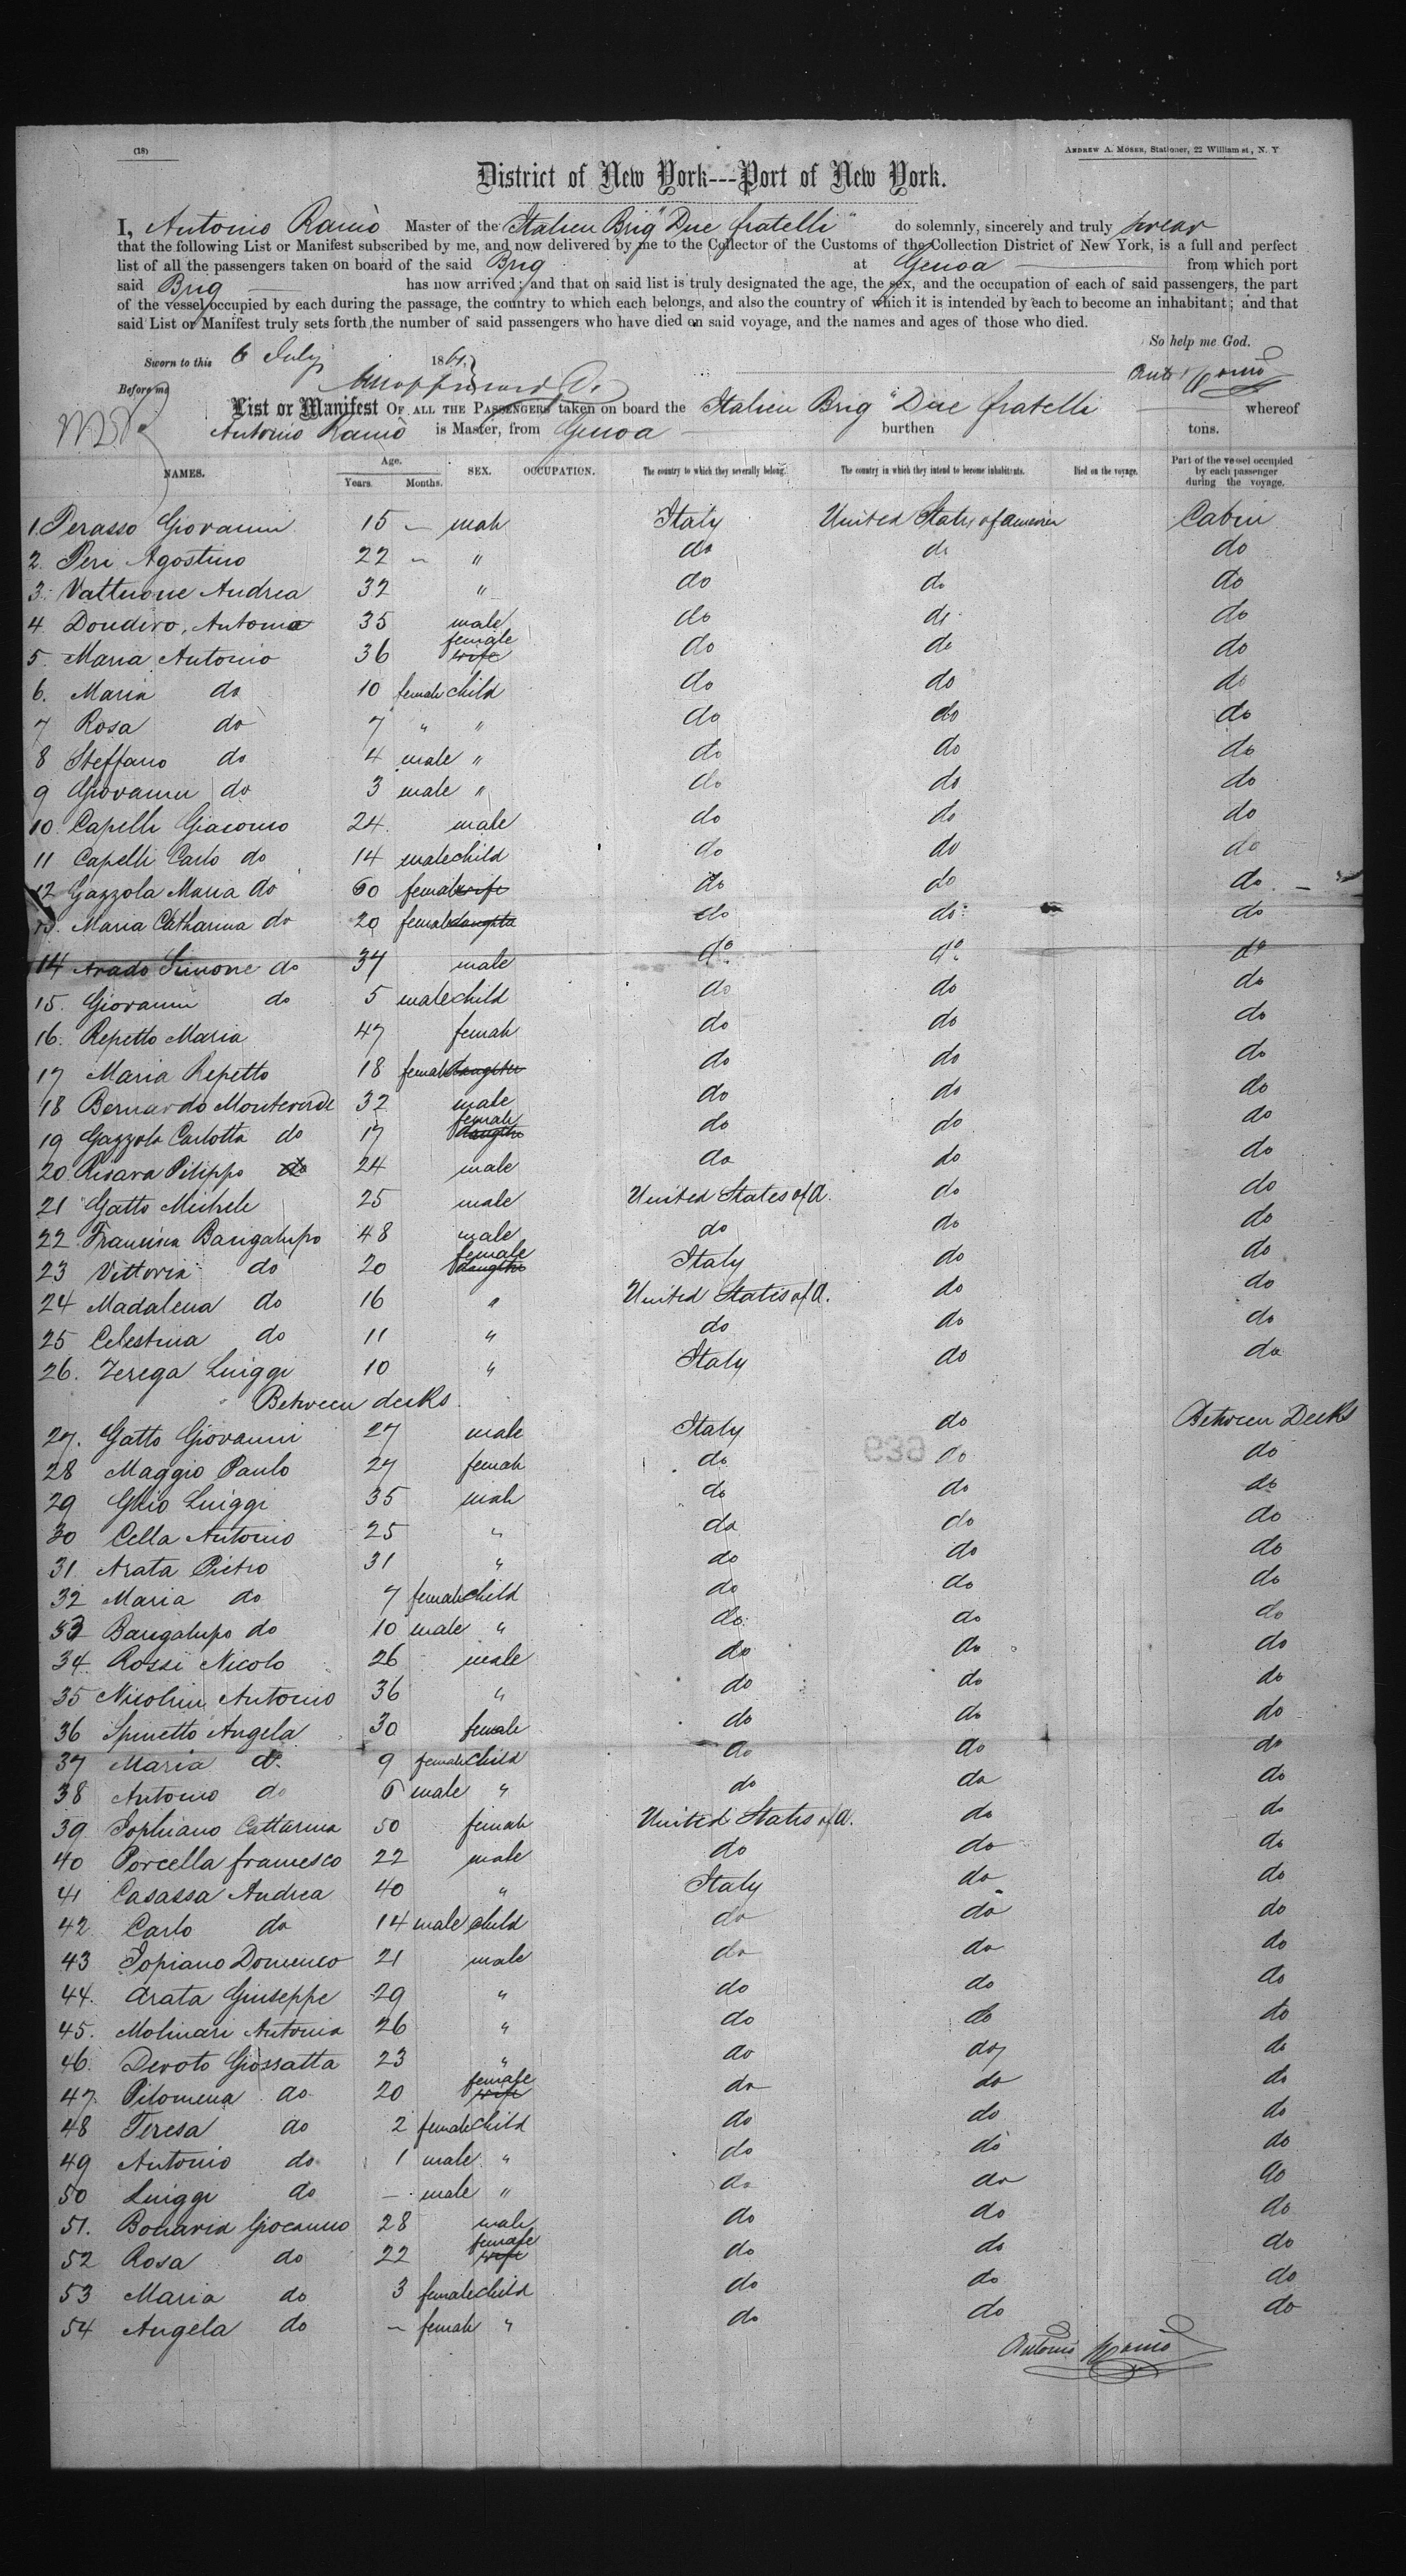 (18)
ANDREW A. MOSER, Stationer, 22 William st, N. Y
District of New York---Port of New York.
I, Antonio Ramò Master of the Italien Brig "Due fratelli" do solemnly, sincerely and truly swear
that the following List or Manifest subscribed by me, and now delivered by me to the Collector of the Customs of the Collection District of New York, is a full and perfect
list of all the passengers taken on board of the said Brig at Genoa from which port
said Brig has now arrived; and that on said list is truly designated the age, the sex, and the occupation of each of said passengers, the part
of the vessel occupied by each during the passage, the country to which each belongs, and also the country of which it is intended by each to become an inhabitant; and that
said List or Manifest truly sets forth the number of said passengers who have died on said voyage, and the names and ages of those who died.
So help me God.
Sworn to this 6 July 186
Before me
List or Manifest OF ALL THE PASSENGERS taken on board the Italien Brig "Due fratelli whereof
Antonio Ramò is Master, from Genoa burthen tons.
NAMES. Age. Years. Months. SEX. OCCUPATION. The country to which they severally belong. The country in which they intend to become inhabitants. Died on the voyage. Part of the vessel occupied by each passenger during the voyage.
1. Perasso Giovanni 15 — male Italy United States of America Cabin
2. Peri Agostino 22 — " do do do
3. Vattuone Andrea 32 " do do do
4 Dondero, Antonio 35 male do do do
5. Maria Antonio 36 female wife do do do
6. Maria do 10 female child do do do
7 Rosa do 7 " " do do do
8 Steffano do 4 male " do do do
9 Giovanni do 3 male " do do do
10. Capelli Giacomo 24 male do do do
11 Capelli Carlo do 14 male child do do do
12 Gazzola Maria do 60 female wife do do do
13. Maria Catharina do 20 female daughter do do do
14 Arado Simone do 34 male do do do
15. Giovanni do 5 male child do do do
16. Repetto Maria 47 female do do do
17 Maria Repetto 18 female daughter do do do
18 Bernardo Monteverde 32 male do do do
19 Gazzola Carlotta do 17 female daughter do do do
20. Risara Pilippo do 24 male do do do
21 Gatto Michele 25 male United States of A. do do
22. Francisca Barigalupo 48 male do do do
23 Vittoria do 20 female daughter Italy do do
24 Madalena do 16 " United States of A. do do
25 Celestina do 11 " do do do
26. Zerega Luiggi 10 " Italy do do
Between decks.
27. Gatto Giovanni 27 male Italy do Between Decks
28 Maggio Paulo 27 female do do do
29 Ghio Luiggi 35 male do do do
30 Cella Antonio 25 " do do do
31. Arata Pietro 31 " do do do
32 Maria do 7 female child do do do
33 Barigalupo do 10 male " do do do
34. Rossi Nicolo 26 male do do do
35 Nicolini Antonio 36 " do do do
36 Spinetto Angela 30 female do do do
37 Maria do 9 female child do do do
38 Antonio do 6 male " do do do
39. Sophiano Cattarina 50 female United States of A. do do
40 Porcella francesco 22 male do do do
41 Casassa Andrea 40 " Italy do do
42 Carlo do 14 male child do do do
43 Sopiano Domenico 21 male do do do
44. Arata Giuseppe 29 " do do do
45. Molinari Antonia 26 " do do do
46. Devoto Giossatta 23 " do do do
47 Pilomena do 20 female wife do do do
48 Teresa do 2 female child do do do
49 Antonio do 1 male " do do do
50 Luiggi do — male " do do do
51. Bonaria Giocanno 28 male do do do
52 Rosa do 22 female wife do do do
53 Maria do 3 female child do do do
54 Angela do — female " do do do
Antonio Ramò